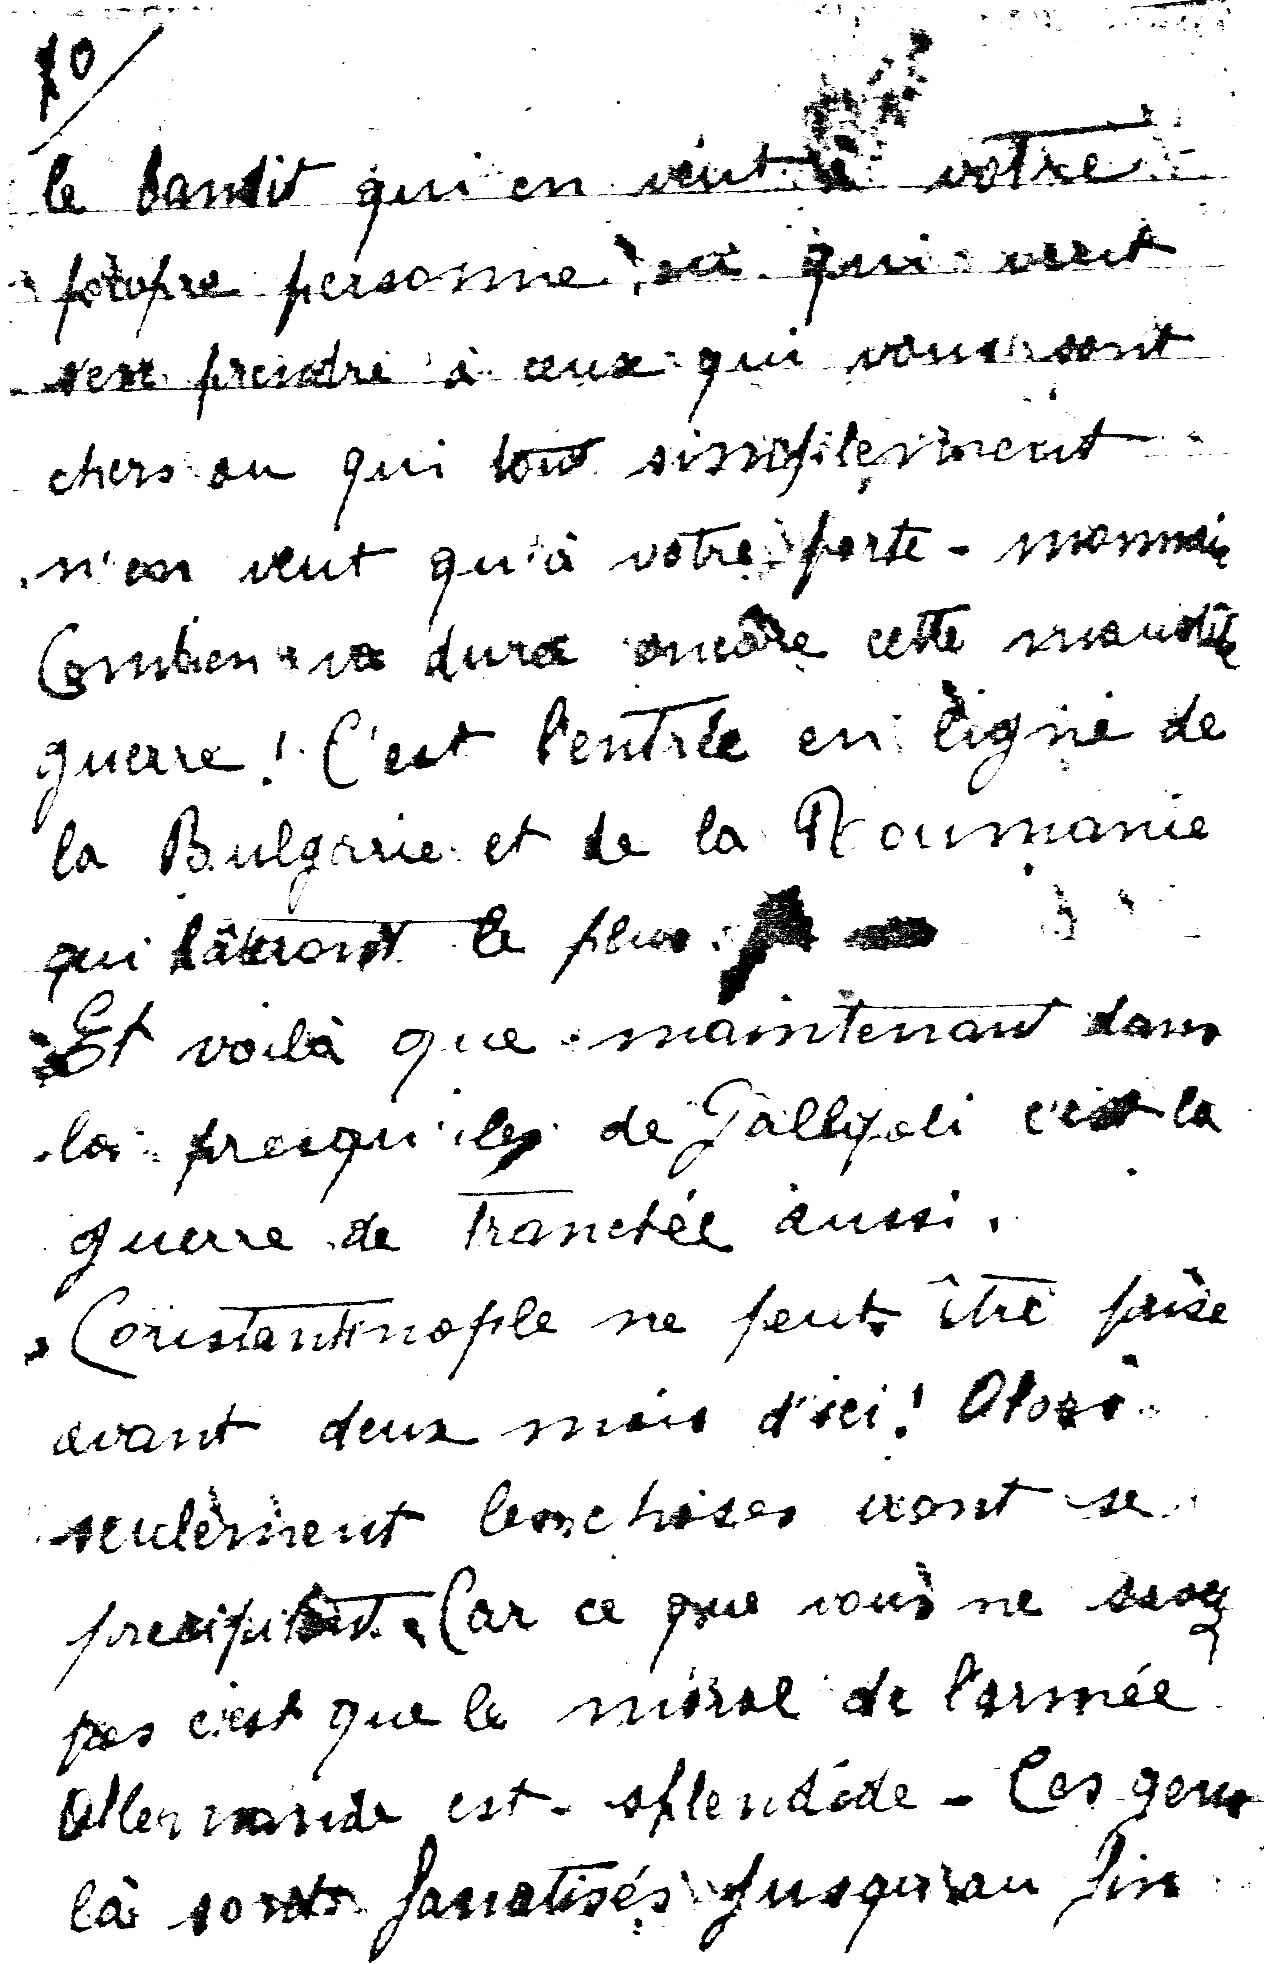 10/
le bandit qui en veut à votre
propre personne, ou qui veut
s'en prendre à ceux qui vous sont
chers ou qui tout simplement
n'en veut qu'à votre porte-monnaie
Combien va durer encore cette maudite
guerre! C'est l'entrée en ligne de
la Bulgarie et de la Roumanie
qui hâteront le plus
Et voilà que maintenant dans
la presqu'ile de Gallipoli c'est la
guerre de tranchée aussi.
Constantinople ne peut être prise
avant deux mois d'ici! Alors
seulement les choses iront se
precipitant. Car ce que vous ne
pas c'est que le moral de l'armée
Allemande est splendide - Ces gens
là sont fanatisés jusqu'au fin